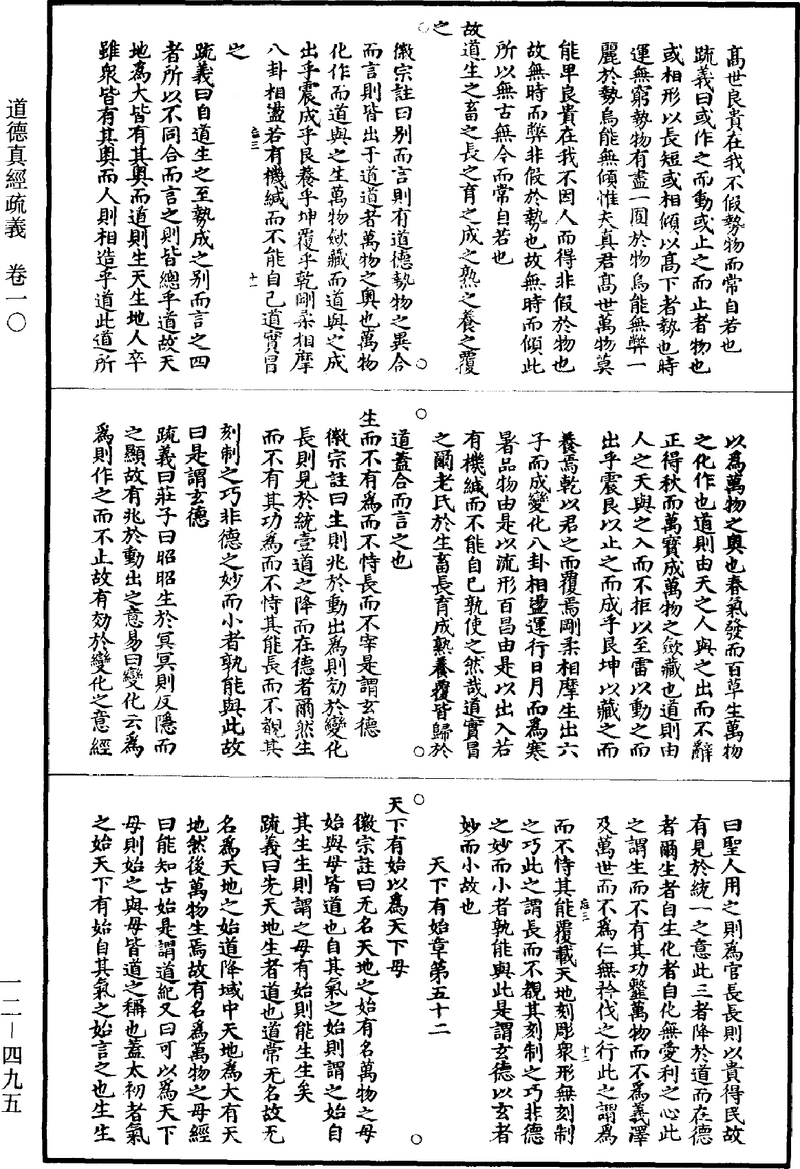 道德真經疏義　卷一〇
高世良貴在我不假勢物而常自若也
疏義曰或作之而動或止之而止者物也
或相形以長短或相傾以高下者勢也時
運無窮勢物有盡一圓於物烏能無弊一
麗於勢烏能無傾惟夫真君高世萬物莫
能卑良貴在我不因人而得非假於物也
故無時而弊非假於勢也故無時而傾此
所以無古無今而常自若也
故道生之畜之長之育之成之熟之養之覆
之
徽宗註曰別而言則有道德勢物之異合
而言則皆出于道道者萬物之奧也萬物
化作而道與之生萬物斂藏而道與之成
出乎震成乎艮養乎坤覆乎乾剛柔相摩
八卦相盪若有機緘而不能自已道實冒
之
疏義曰自道生之至勢成之別而言之四
者所以不同合而言之則皆總乎道故天
地為大皆有其奧而道則生天生地人卒
雖衆皆有其奧而人則相造乎道此道所
以為萬物之奧也春氣發而百草生萬物
之化作也道則由天之人與之出而不辭
正得秋而萬寶成萬物之斂藏也道則由
人之天與之入而不拒以至雷以動之而
出乎震艮以止之而成乎艮坤以藏之而
養焉乾以君之而覆焉剛柔相摩生出六
子而成變化八卦相盪運行日月而為寒
暑品物由是以流形百昌由是以出入若
有機緘而不能自已孰使之然哉道實冒
之爾老氏於生畜長育成熟養覆皆歸於
道蓋合而言之也
生而不有為而不恃長而不宰是謂玄德
徽宗註曰生則兆於動出為則効於變化
長則見於統壹道之降而在德者爾然生
而不有其功為而不恃其能長而不覩其
刻制之巧非德之妙而小者孰能與此故
曰是謂玄德
疏義曰莊子曰昭昭生於冥冥則反隱而
之顯故有兆於動出之意易曰變化云為
為則作之而不止故有効於變化之意經
曰聖人用之則為官長長則以貴得民故
有見於統一之意此三者降於道而在德
者爾生者自生化者自化無愛利之心此
之謂生而不有其功䪠萬物而不為義澤
及萬世而不為仁無矜伐之行此之謂為
而不恃其能覆載天地刻彫衆形無刻制
之巧此之謂長而不覩其刻制之巧非德
之妙而小者孰能與此是謂玄德以玄者
妙而小故也
天下有始章第五十二
天下有始以為天下母
徽宗註曰无名天地之始有名萬物之母
始與母皆道也自其氣之始則謂之始自
其生生則謂之母有始則能生生矣
疏義曰先天地生者道也道常无名故无
名為天地之始道降域中天地為大有天
地然後萬物生焉故有名為萬物之母經
曰能知古始是謂道紀又曰可以為天下
母則始之與母皆道之稱也蓋太初者氣
之始天下有始自其氣之始言之也生生
一二－四九五